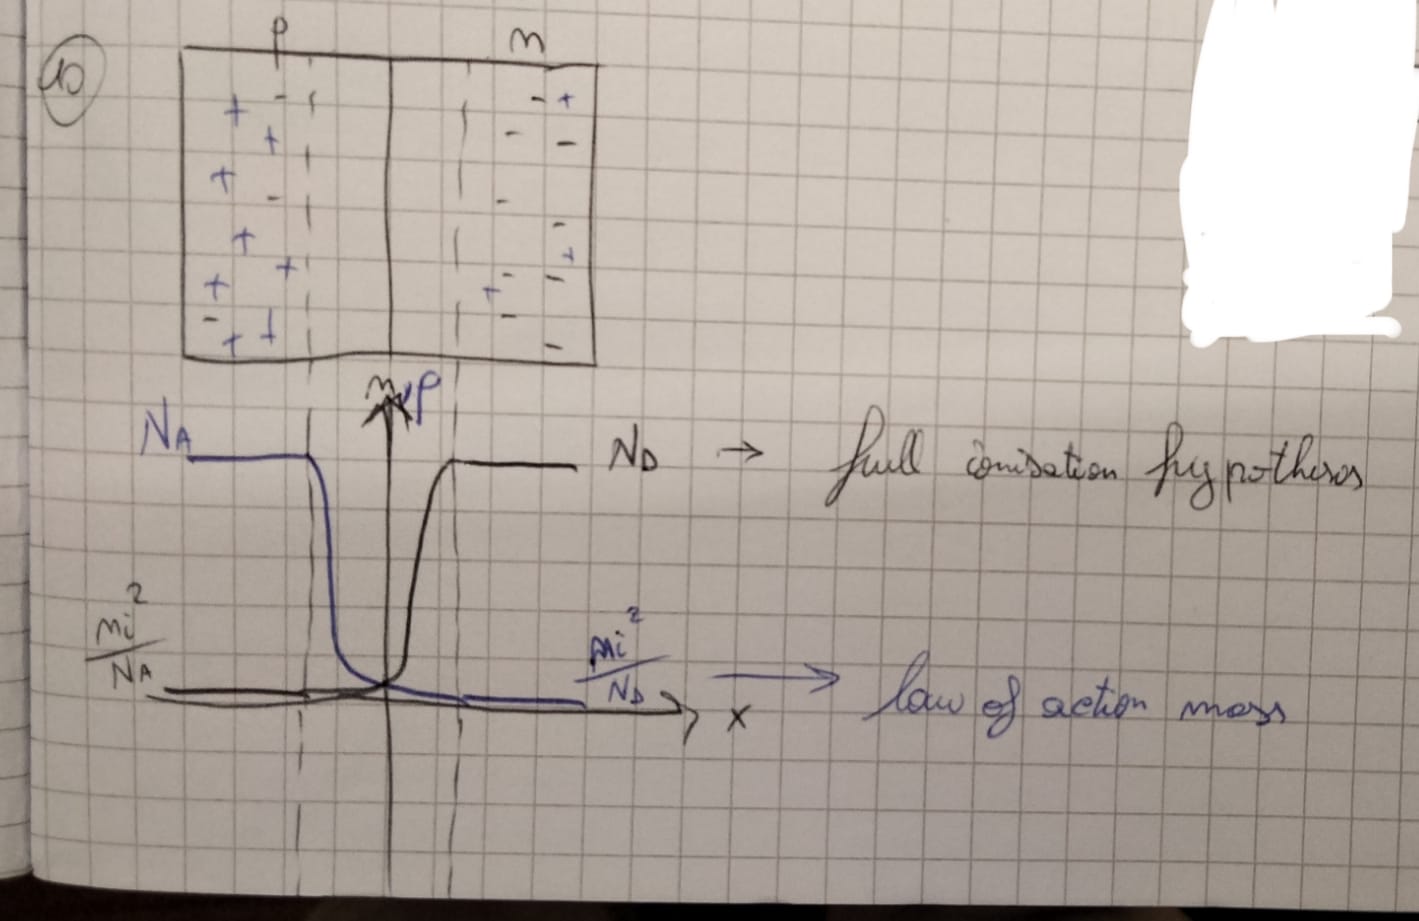 10
p n
+ - - +
+ - -
+
- -
+ - +
+ -
+ + - -
- + + - -
n, p
NA ND → full ionisation hypothesis
ni²/NA ni²/ND → law of action mass
x